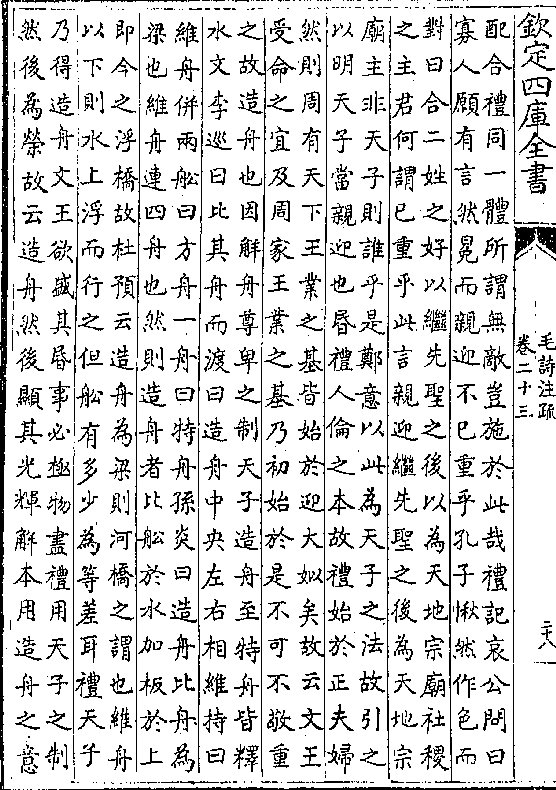 欽定四庫全書
毛詩注疏
卷二十三
二八
配合禮同一體所謂無敵豈施於此哉禮記哀公問曰
寡人願有言然冕而親迎不已重乎孔子愀然作色而
對曰合二姓之好以繼先聖之後以為天地宗廟社稷
之主君何謂已重乎此言親迎繼先聖之後為天地宗
廟主非天子則誰乎是鄭意以此為天子之法故引之
以明天子當親迎也昏禮人倫之本故禮始於正夫婦
然則周有天下王業之基皆始於迎大姒矣故云文王
受命之宜及周家王業之基乃初始於是不可不敬重
之故造舟也因解舟尊卑之制天子造舟至特舟皆釋
水文李巡曰比其舟而渡曰造舟中央左右相維持曰
維舟併兩船曰方舟一舟曰特舟孫炎曰造舟比舟為
梁也維舟連四舟也然則造舟者比船於水加板於上
即今之浮橋故杜預云造舟為梁則河橋之謂也維舟
以下則水上浮而行之但船有多少為等差耳禮天子
乃得造舟文王欲盛其昏事必極物盡禮用天子之制
然後為榮故云造舟然後顯其光輝解本用造舟之意